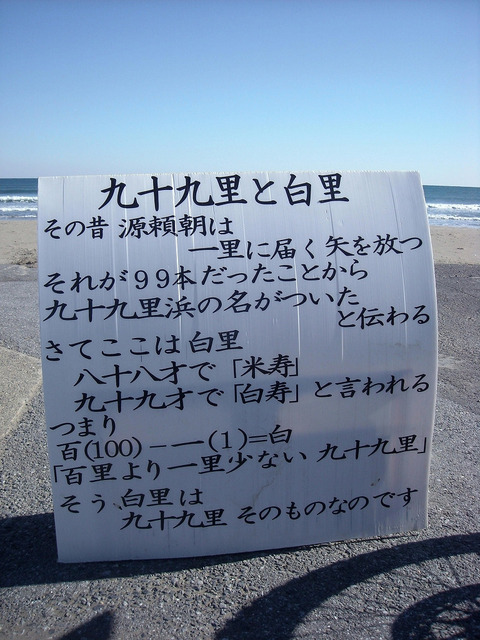 九十九里と白里
その昔 源頼朝は
一里に届く矢を放つ
それが99本だったことから
九十九里浜の名がついた
と伝わる
さてここは白里
八十八才で「米寿」
九十九才で「白寿」と言われる
つまり
百(100)－一(1)=白
「百里より一里少ない 九十九里」
そう、白里は
九十九里 そのものなのです